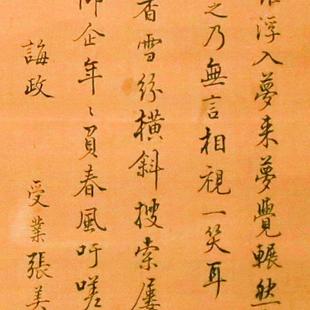 浮入夢来夢覺輾然
之乃無言相視一笑耳
香雪紛橫斜搜索屢
仰企年〻負春風吁嗟
誨政
受業張美